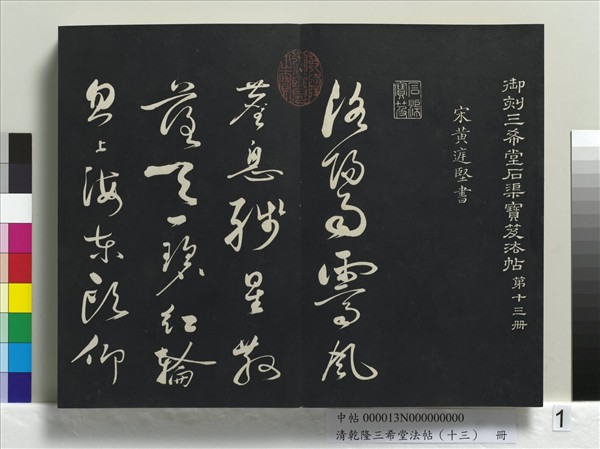 御刻三希堂石渠寶笈法帖 第十三冊
宋黃庭堅書
石渠寶笈
洛陽雨霽風
塵息殘星散
落天一碧紅輪
忽上海東頭仰
中帖 000013N000000000
清乾隆三希堂法帖（十三） 冊
1